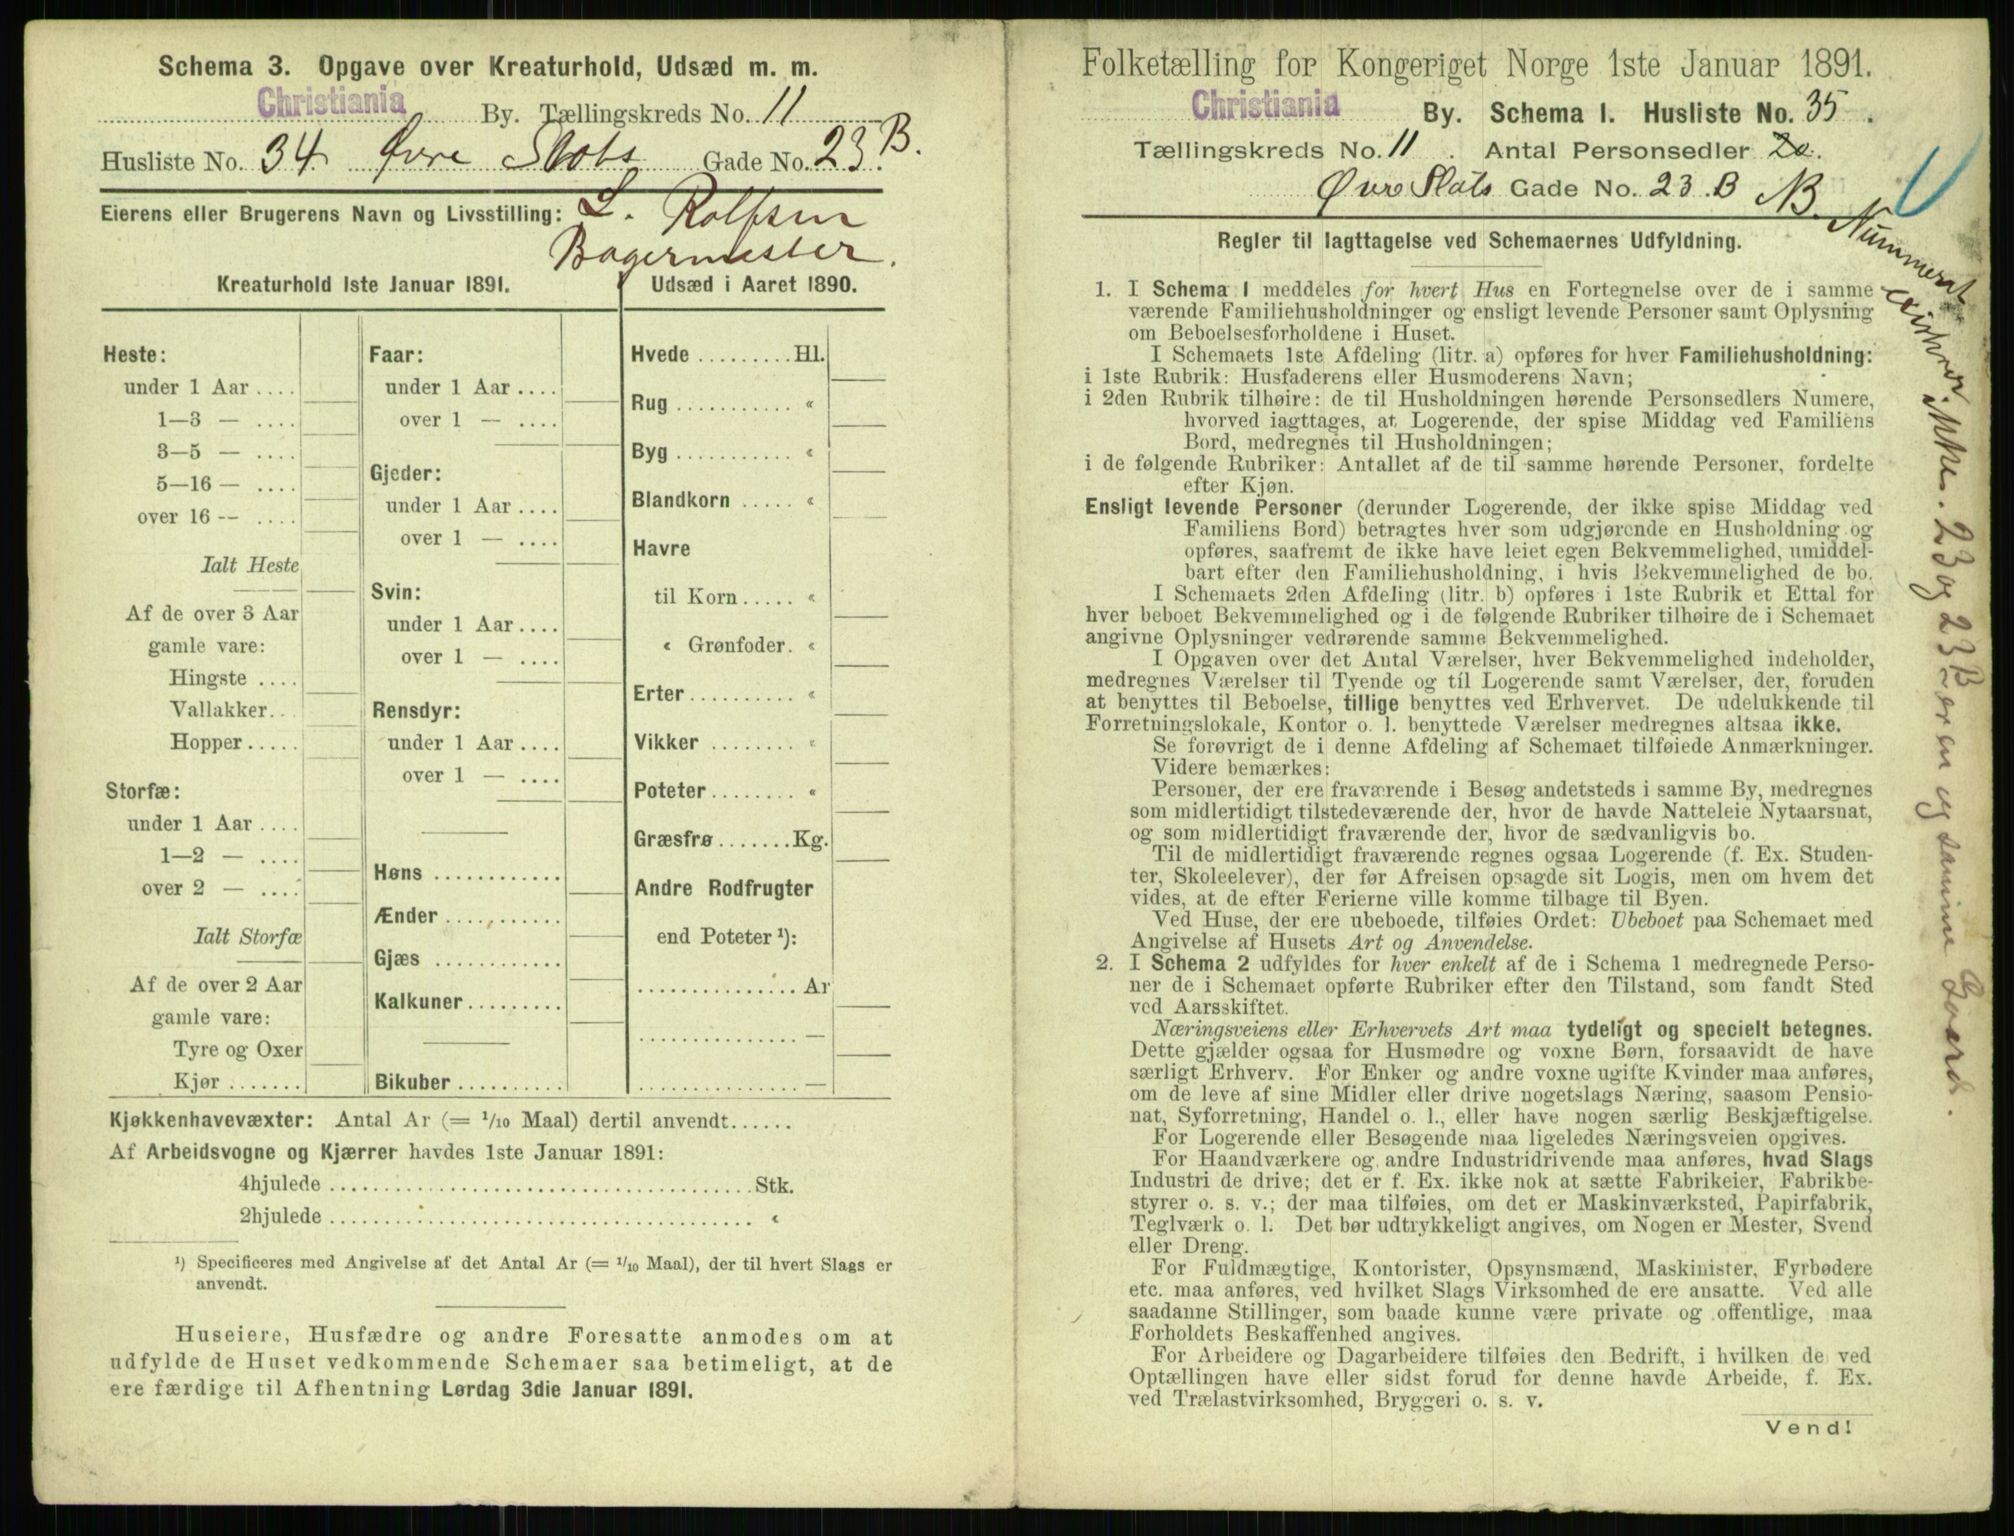 Schema 3. Opgave over Kreaturhold, Udsæd m. m.
Christiania By. Tællingskreds No. 11
Husliste No. 34. Øvre Slots Gade No. 23 B.
Eierens eller Brugerens Navn og Livsstilling: L. Rolfsen
Bagermester.
Kreaturhold 1ste Januar 1891.
Heste:
under 1 Aar ....
1—3 — ....
3—5 — ....
5—16 — ....
over 16 -- ....
Ialt Heste
Af de over 3 Aar
gamle vare:
Hingste ....
Vallakker...
Hopper.....
Storfæ:
under 1 Aar ....
1—2 — ....
over 2 — ....
Ialt Storfæ
Af de over 2 Aar
gamle vare:
Tyre og Oxer
Kjør .......
Faar:
under 1 Aar ....
over 1 — ....
Gjeder:
under 1 Aar ....
over 1 — ....
Svin:
under 1 Aar ....
over 1 — ....
Rensdyr:
under 1 Aar ....
over 1 — ....
Høns ............
Ænder ...........
Gjæs ............
Kalkuner.........
Bikuber ..........
Udsæd i Aaret 1890.
Hvede .........Hl.
Rug ........... «
Byg ........... «
Blandkorn ..... «
Havre
til Korn..... «
« Grønfoder. «
Erter.......... «
Vikker ........ «
Poteter........ «
Græsfrø.......Kg.
Andre Rodfrugter
end Poteter ¹):
............... Ar
............... —
............... —
Kjøkkenhavevæxter: Antal Ar (= 1/10 Maal) dertil anvendt......
Af Arbeidsvogne og Kjærrer havdes 1ste Januar 1891:
4hjulede ....................................... Stk.
2hjulede ....................................... «
¹) Specificeres med Angivelse af det Antal Ar (= 1/10 Maal), der til hvert Slags er
anvendt.
Huseiere, Husfædre og andre Foresatte anmodes om at
udfylde de Huset vedkommende Schemaer saa betimeligt, at de
ere færdige til Afhentning Lørdag 3die Januar 1891.
Folketælling for Kongeriget Norge 1ste Januar 1891.
Christiania By. Schema I. Husliste No. 35.
Tællingskreds No. 11. Antal Personsedler
Øvre Slots Gade No. 23 B
NB. Nummeret existerer ikke. 23 og 23 B er en og samme Gaard.
Regler til Iagttagelse ved Schemaernes Udfyldning.
1. I Schema I meddeles for hvert Hus en Fortegnelse over de i samme
værende Familiehusholdninger og ensligt levende Personer samt Oplysning
om Beboelsesforholdene i Huset.
I Schemaets 1ste Afdeling (litr. a) opføres for hver Familiehusholdning:
i 1ste Rubrik: Husfaderens eller Husmoderens Navn;
i 2den Rubrik tilhøire: de til Husholdningen hørende Personsedlers Numere,
hvorved iagttages, at Logerende, der spise Middag ved Familiens
Bord, medregnes til Husholdningen;
i de følgende Rubriker: Antallet af de til samme hørende Personer, fordelte
efter Kjøn.
Ensligt levende Personer (derunder Logerende, der ikke spise Middag ved
Familiens Bord) betragtes hver som udgjørende en Husholdning og
opføres, saafremt de ikke have leiet egen Bekvemmelighed, umiddel-
bart efter den Familiehusholdning, i hvis Bekvemmelighed de bo.
I Schemaets 2den Afdeling (litr. b) opføres i 1ste Rubrik et Ettal for
hver beboet Bekvemmelighed og i de følgende Rubriker tilhøire de i Schemaet
angivne Oplysninger vedrørende samme Bekvemmelighed.
I Opgaven over det Antal Værelser, hver Bekvemmelighed indeholder,
medregnes Værelser til Tyende og til Logerende samt Værelser, der, foruden
at benyttes til Beboelse, tillige benyttes ved Erhvervet. De udelukkende til
Forretningslokale, Kontor o. l. benyttede Værelser medregnes altsaa ikke.
Se forøvrigt de i denne Afdeling af Schemaet tilføiede Anmærkninger.
Videre bemærkes:
Personer, der ere fraværende i Besøg andetsteds i samme By, medregnes
som midlertidigt tilstedeværende der, hvor de havde Natteleie Nytaarsnat,
og som midlertidigt fraværende der, hvor de sædvanligvis bo.
Til de midlertidigt fraværende regnes ogsaa Logerende (f. Ex. Studen-
ter, Skoleelever), der før Afreisen opsagde sit Logis, men om hvem det
vides, at de efter Ferierne ville komme tilbage til Byen.
Ved Huse, der ere ubeboede, tilføies Ordet: Ubeboet paa Schemaet med
Angivelse af Husets Art og Anvendelse.
2. I Schema 2 udfyldes for hver enkelt af de i Schema 1 medregnede Perso-
ner de i Schemaet opførte Rubriker efter den Tilstand, som fandt Sted
ved Aarsskiftet.
Næringsveiens eller Erhvervets Art maa tydeligt og specielt betegnes.
Dette gjælder ogsaa for Husmødre og voxne Børn, forsaavidt de have
særligt Erhverv. For Enker og andre voxne ugifte Kvinder maa anføres,
om de leve af sine Midler eller drive nogetslags Næring, saasom Pensio-
nat, Syforretning, Handel o. l., eller have nogen særlig Beskjæftigelse.
For Logerende eller Besøgende maa ligeledes Næringsveien opgives.
For Haandværkere og andre Industridrivende maa anføres, hvad Slags
Industri de drive; det er f. Ex. ikke nok at sætte Fabrikeier, Fabrikbe-
styrer o. s. v.; der maa tilføies, om det er Maskinværksted, Papirfabrik,
Teglværk o. l. Det bør udtrykkeligt angives, om Nogen er Mester, Svend
eller Dreng.
For Fuldmægtige, Kontorister, Opsynsmænd, Maskinister, Fyrbødere
etc. maa anføres, ved hvilket Slags Virksomhed de ere ansatte. Ved alle
saadanne Stillinger, som baade kunne være private og offentlige, maa
Forholdets Beskaffenhed angives.
For Arbeidere og Dagarbeidere tilføies den Bedrift, i hvilken de ved
Optællingen have eller sidst forud for denne havde Arbeide, f. Ex.
ved Trælastvirksomhed, Bryggeri o. s. v.
Vend!